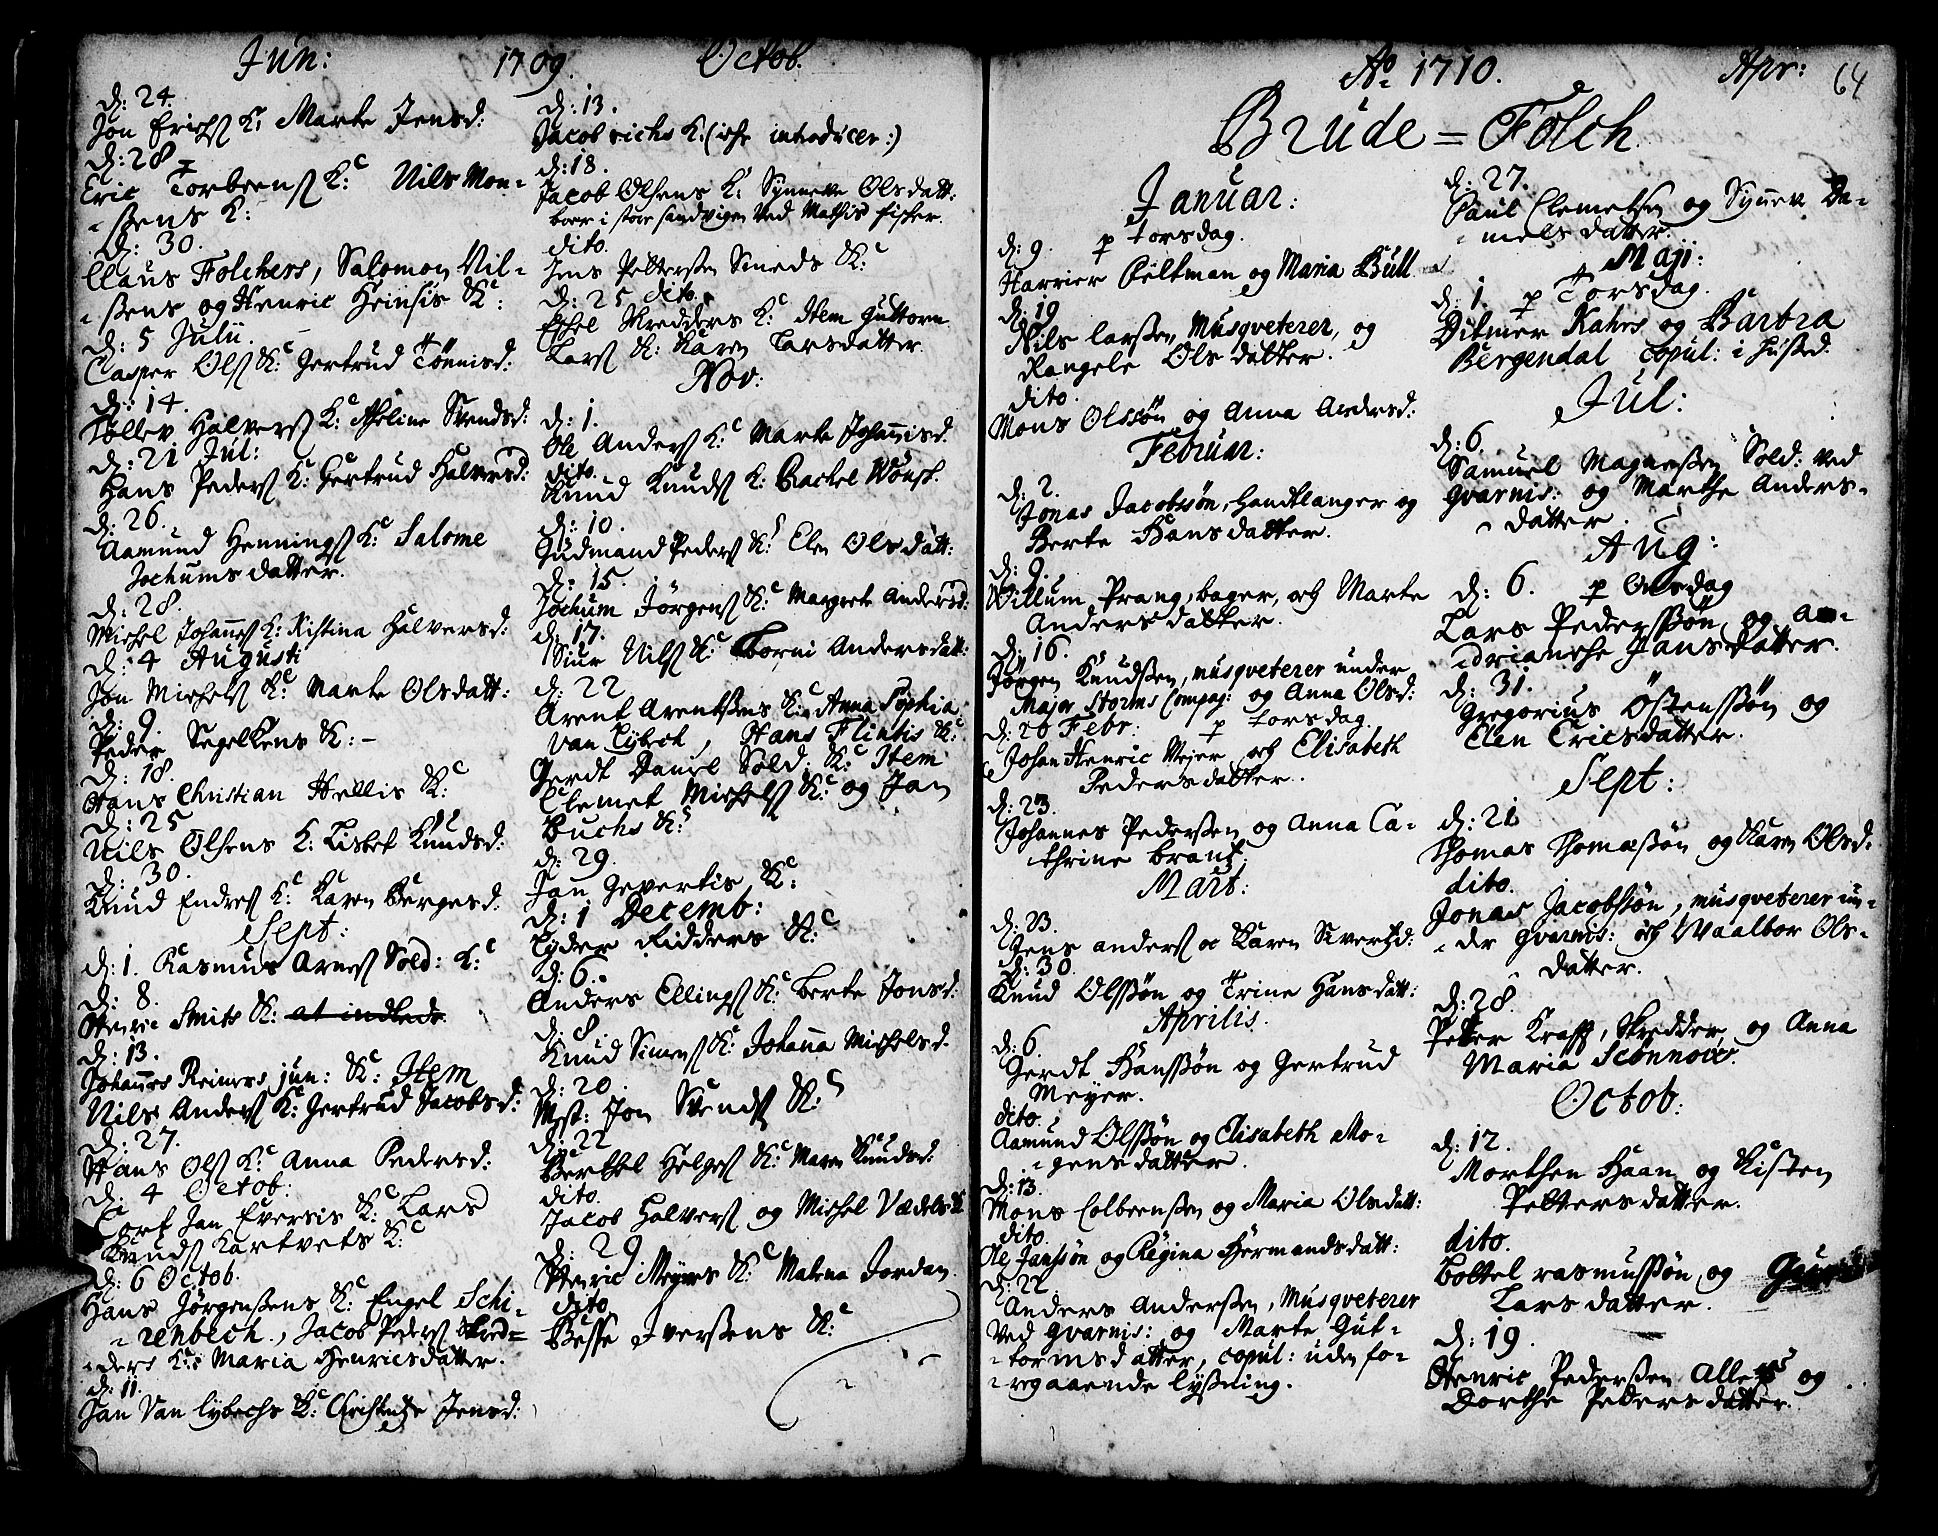 Jun: 1709. Octob.
d: 24.
Jon Erichs K: Marte Jensd:
d: 28
Eric Torbeens K: Nils Mon-
-sens K:
d: 30.
Claus Folchers, Salomon Nil-
-sens og Henric Heinsis K:
d: 5 Julii.
Casper Ols K: Gertrud Tönnisd:
d: 14.
Tollev Halvers K: Aseline Svendsd:
d: 21 Jul:
Hans Peders K: Gertrud Halversd:
d: 26.
Aamund Hennings K: Salome
Jochumsdatter.
d: 28.
Michel Johannes K: Kistina Halversd:
d: 4 Augusti
Jon Michels K: Marte Olsdatt:
d: 9.
Peder Segelkens K: -
d: 18.
Hans Christian Hellis K:
d: 25
Nils Olsens K: Lisbet Knudsd:
d: 30.
Knud Endres K: Karen Bergesd.
Sept:
d: 1. Rasmus Arnes Sold: K:
d: 8.
Henric Smits K: at indlede
d: 13.
Johannes Reimers jun: K: Item
Nils Anders K: Gertrud Jacobsd:
d: 27.
Hans Ols K: Anna Pedersd:
d: 4 Octob:
Jan Eversis K: Lars
Knuds Kartvets K:
d: 6 Octob.
Hans Jörgensens K: Engel Schi-
-renbech., Jacob Peders Skred-
-ders K: Maria Henricsdatter.
d: 11
Jan Van Lybechs K: Christentse Jensd:
d: 13.
Jacob richs K: (iche introducer:)
d: 18.
Jacob Olsens K: Synneve Olsdatt:
boer i store sandvigen Ved Mathis fisker.
dito.
Jens Pettersen Smeds K:
d: 25 dito.
Ethel Skredders K: Item Guttorm
Lars K: Karen Larsdatter.
Nov:
d: 1.
Ole Anders K: Marte Johannisd.
dito.
Knud Knuds K: Rachel
d: 10.
Gudmand Peders K: Elen Olsdatt:
d: 15.
Jochum Jörgens K: Margrete Andersd:
d: 17.
Siur Nils K: Borni Andersdatt:
d: 22
Arent Arentsens K: Anna Sophia
van Lybeck, Hans Flintis K:
Gerdt Daniel Sold: K: Item
Clemet Michels K: og Jan
Buchs K:
d: 29.
Jan Gevertis K:
d: 1 Decemb:
Lyder Ridders K:
d: 6.
Anders Ellings K: Berte Jonsd:
d: 8.
Knud Simens K: Johanna Michelsd.
d: 20.
Mst: Jon Svends K:
d: 22
Berthel Helges K: Maren Knudsd:
dito.
Jacob Halvers og Michel Vædels K
d: 29
Henric Meyers K: Malena Jordan.
dito
Besse Iversens K:
Ao 1710. Apr: 64
Brude = Folch
Januar:
d: 9. p torsdag.
Harrier Peltman og Maria Bull
d: 19
Nils Larsen, Musqveterer, og
Rangele Olsdatter.
dito
Mons Olssön og Anna Andersd:
Februar:
d: 2.
Jonas Jacobsön, Handtlanger og
Berte Hansdatter.
d: 9.
Willum Prang, bager, och Marte
Andersdatter.
d: 16.
Jörgen Knudsen, musqveterer under
Major Storms Compag: og Anna Olsd:
d: 20 Febr: p torsdag.
Johan Henric Mejer och Elisabeth
Pedersdatter.
d: 23.
Johannes Pedersen og Anna Ca-
thrine brant.
Mart:
d: 23.
Jens anders oc Karen Sivertsd:
d: 30.
Knud Olssön og Trine Hansdatt:
Aprilis.
d: 6.
Gerdt Hanssön og Gertrud
Meyer.
dito.
Aamund Olssön og Elisabeth Mo-
-gensdatter.
d: 13.
Mons Colbeensen og Maria Olsdatt:
dito.
Ole Janssön og Regina Hermandsdatt:
d: 22
Anders Andersen, Musqveterer
Ved gvarnis: og Marte Gut-
-tormsdatter, copul: uden fo-
-regaaende lysning.
d: 27.
Paul Clemetsen og Synnev Da-
-nielsdatter.
Maji:
d: 1. p Torsdag.
Ditmer Kahrs og Barbra
Bergendal copul: i Huset.
Jul:
d: 6.
Samuel Magnessen Sold: ved
gvarnis: og Marthe Anders-
- datter.
Aug:
d: 6. p Onsdag
Lars Pederssön og A-
-drianche Hansdatter.
d: 31.
Gregorius Östenssön og
Elen Ericsdatter.
Sept:
d: 21
Thomas Thomassön og Karen Olsd:
dito.
Jonas Jacobssön, musqveterer un-
-dr gvarnis: och Waalbor Ols-
datter.
d: 28.
Petter Krafft, Skredder, og Anna
Maria Sconnoies.
Octob:
d: 12.
Morthen Haan og Kisten
Pettersdatter.
dito.
Bottel rasmussön og Guri
Larsdatter.
d: 19.
Henric Pedersen Allers og
Dorthe Pedersdatter.